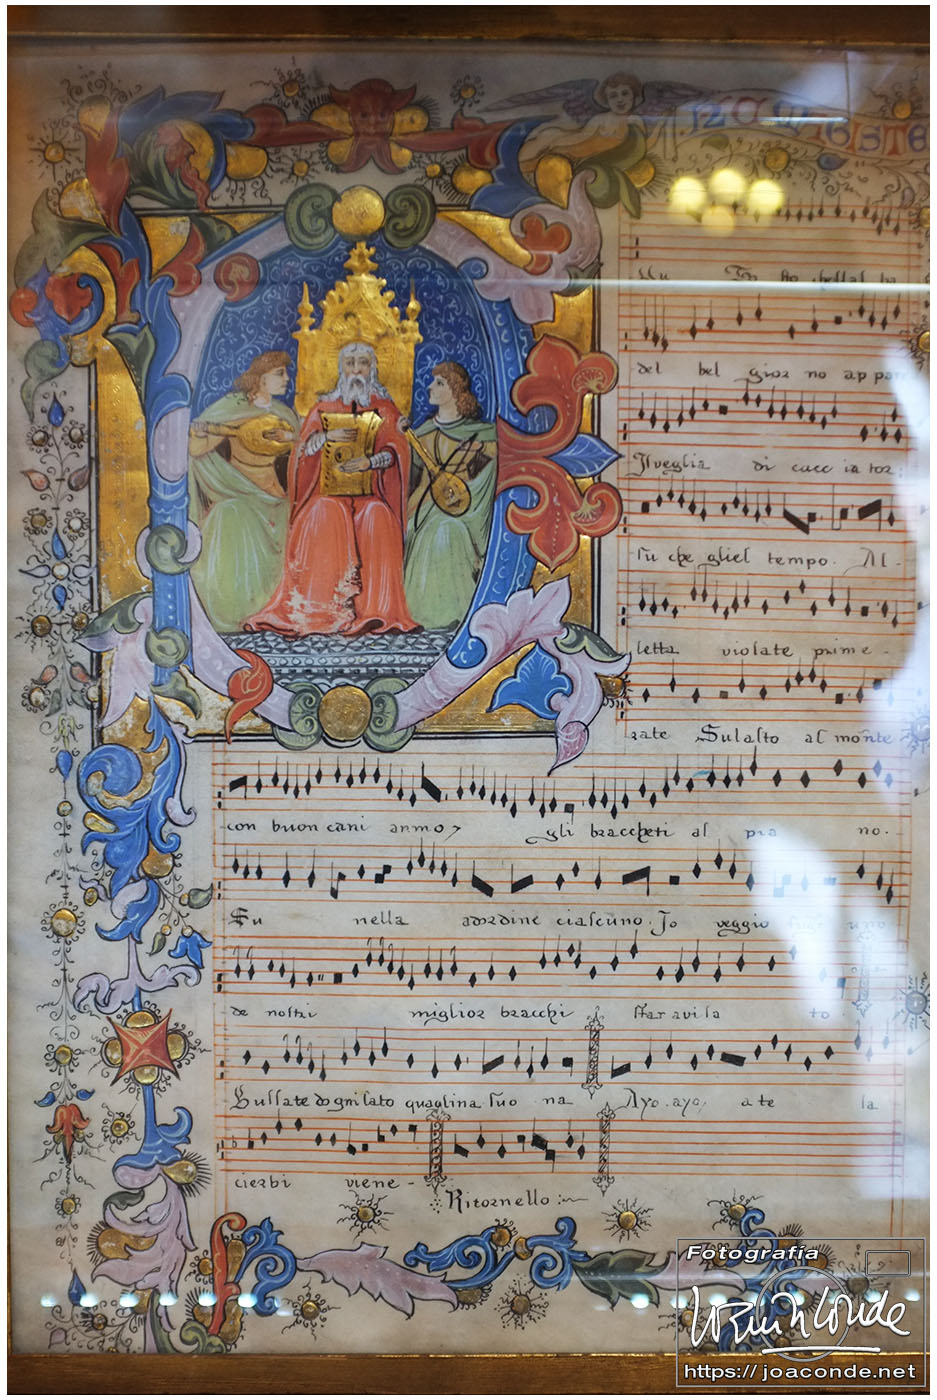 del bel gior no appare
Isveglia di cacc ia tor
su che gliel tempo. Al-
letta violate prime-
rate Sulalto al monte
con buon cani anmo
gli braccheti al pia no.
Su nella adordine ciascuno. Jo veggio uno
de nostri miglior bracchi star avisa to
Bussate dognilato quaglina suo na Ayo. ayo, a te la
cierbi viene-
Ritornello
Fotografía
https://joaconde.net